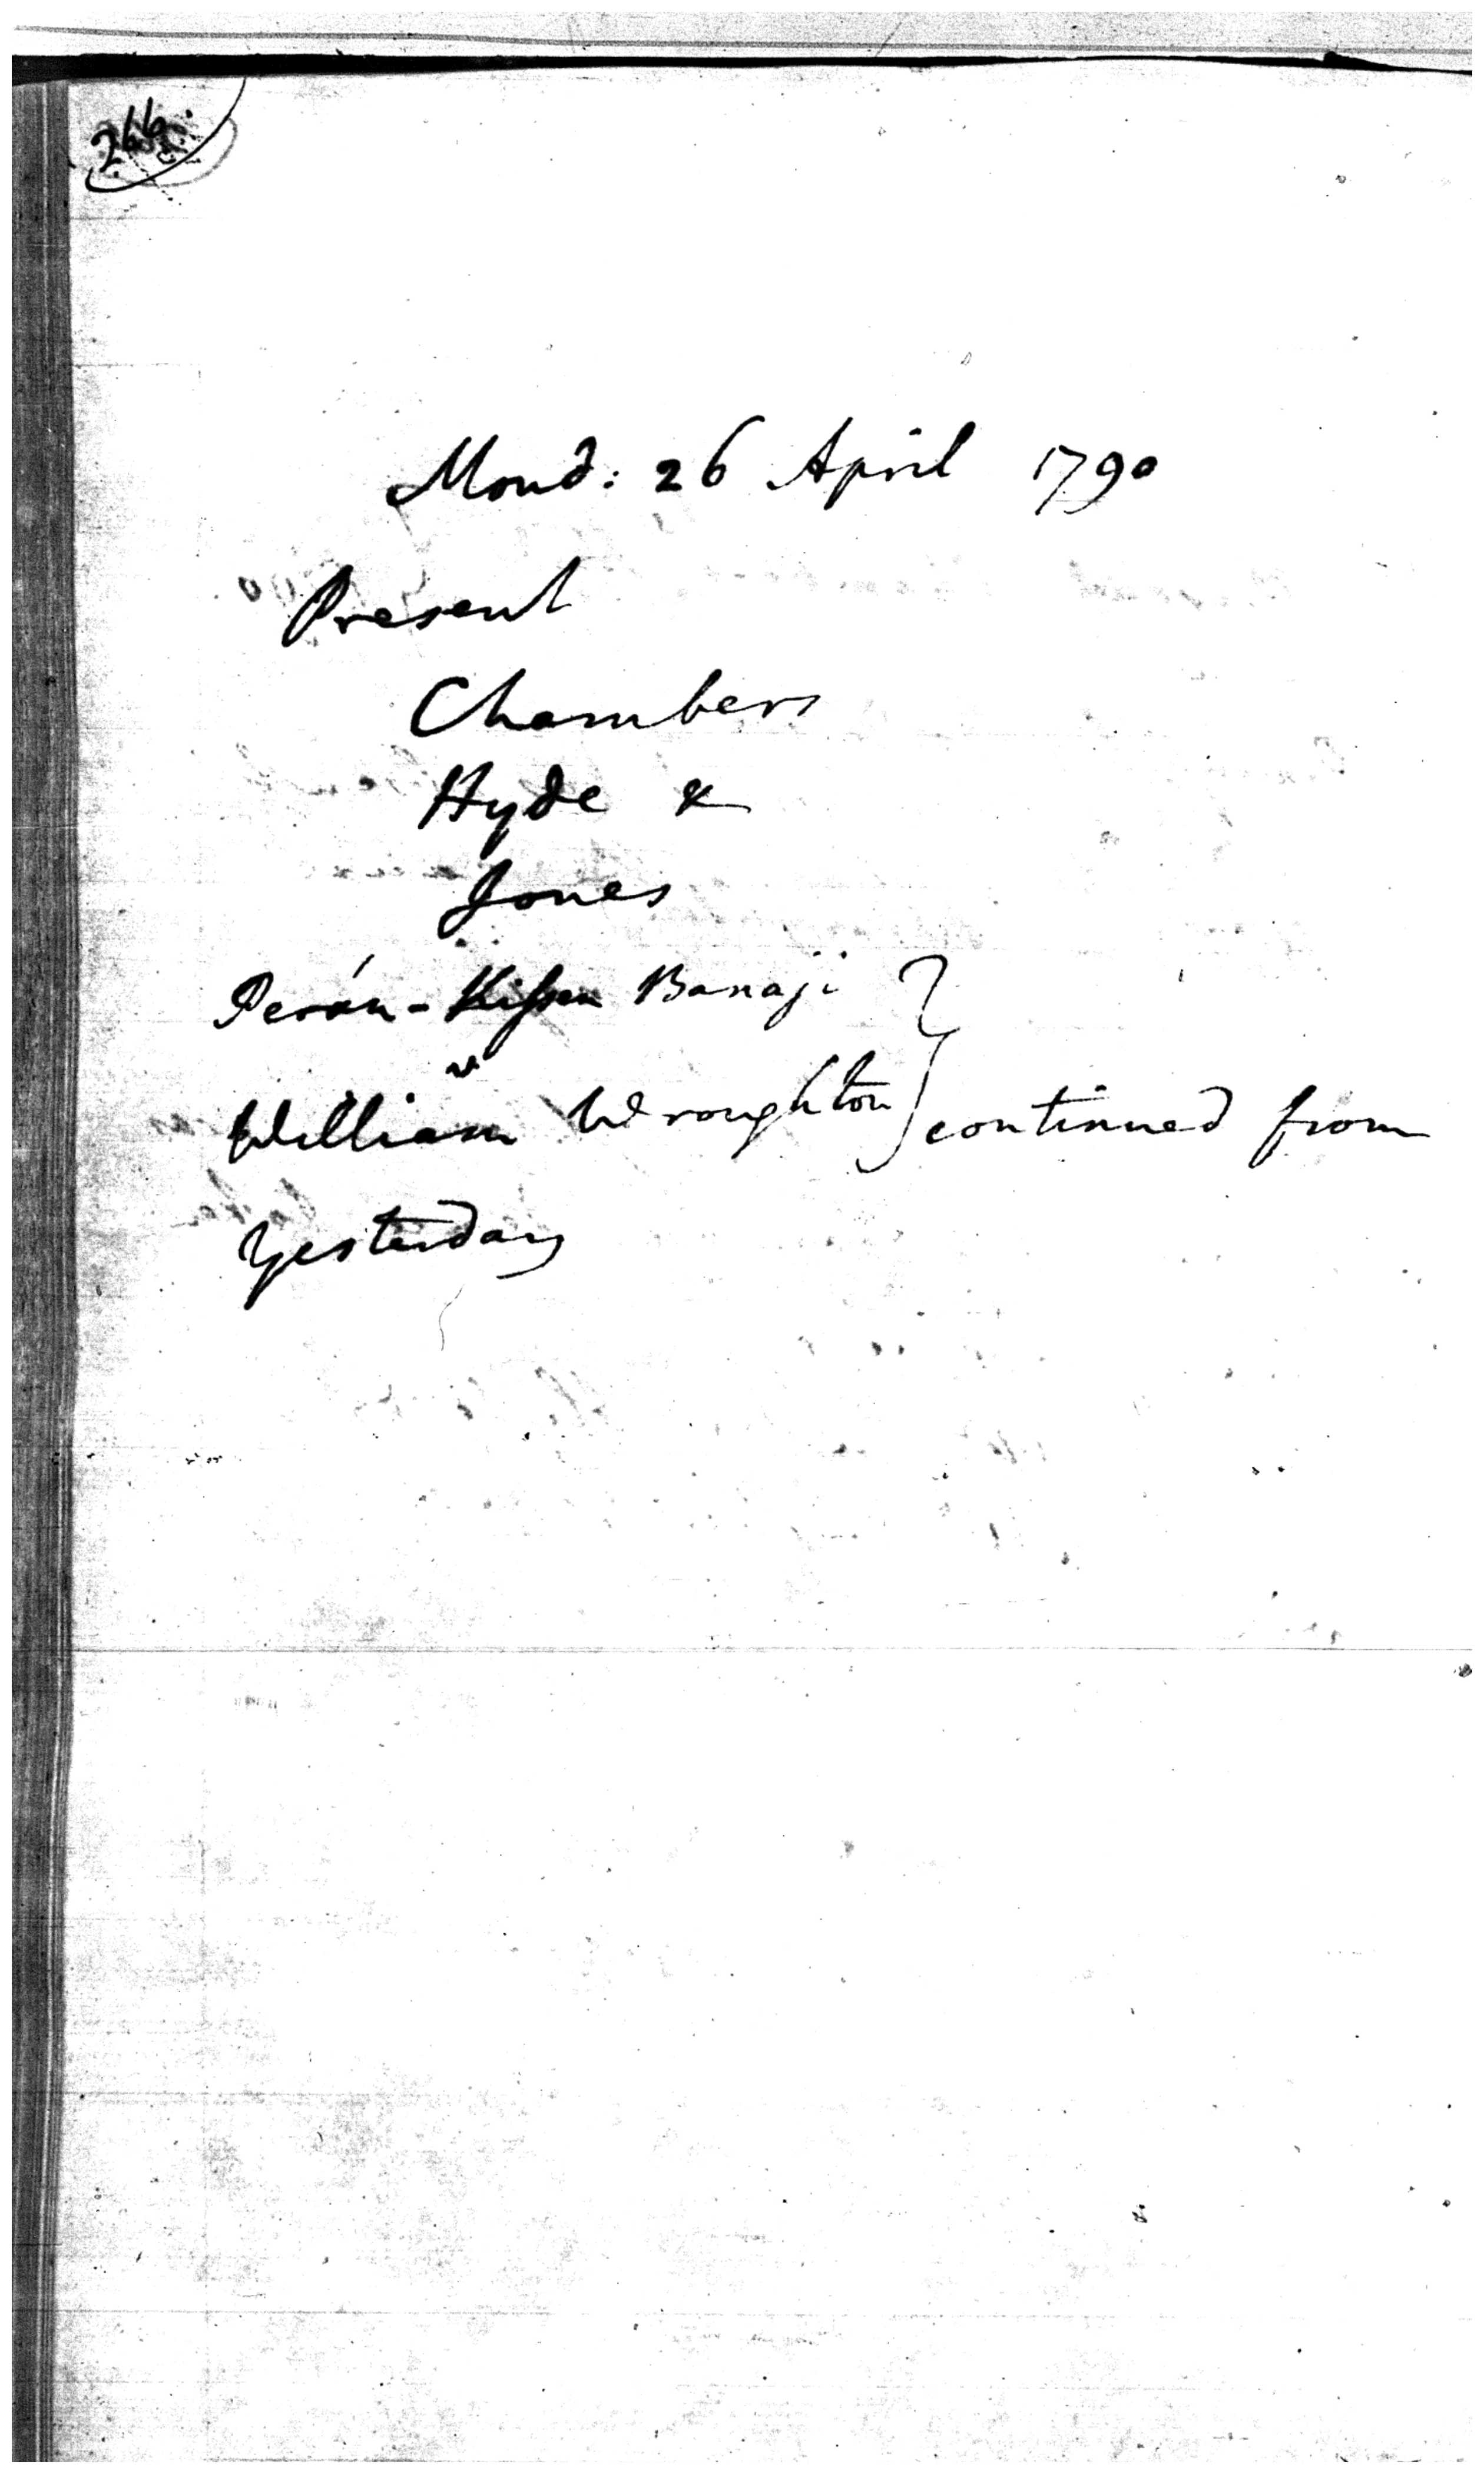 266
Mond: 26 April 1790
Present
Chambers
Hyde &
Jones
Perán-Kissen Banaji
v.
William Wroughton } continued from
Yesterday